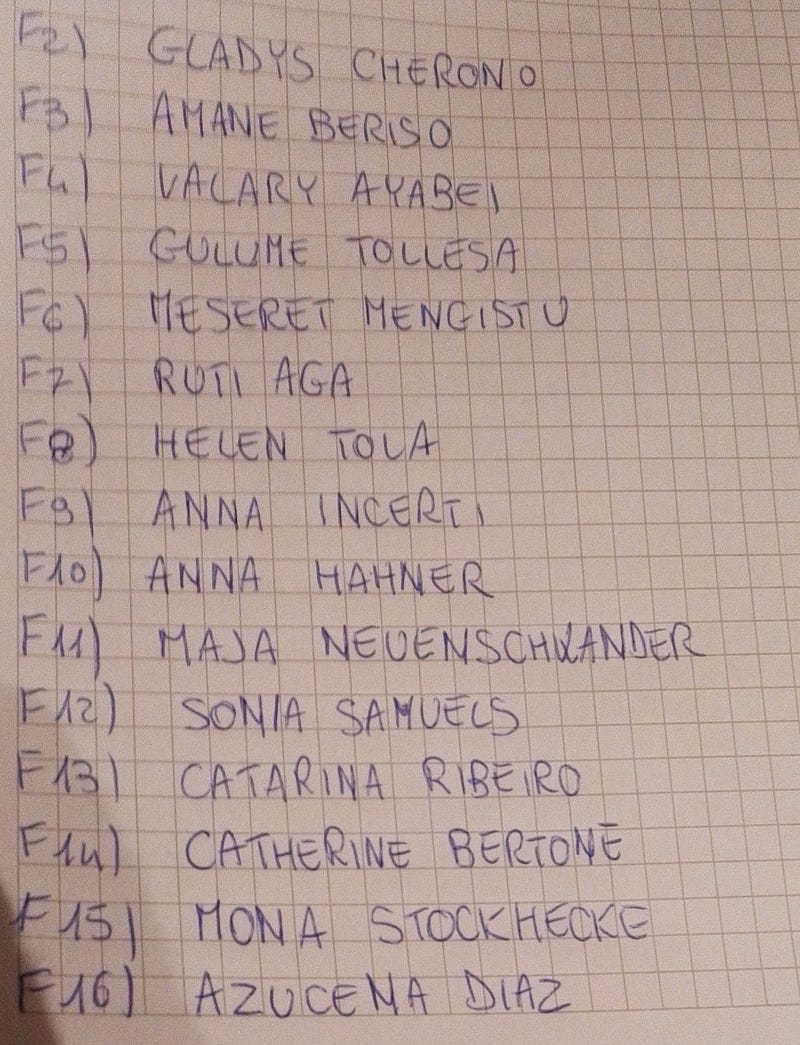 F2) GLADYS CHERONO
F3) AMANE BERISO
F4) VALARY AYABEI
F5) GULUME TOLLESA
F6) MESERET MENGISTU
F7) RUTI AGA
F8) HELEN TOLA
F9) ANNA INCERTI
F10) ANNA HAHNER
F11) MAJA NEUENSCHWANDER
F12) SONIA SAMUELS
F13) CATARINA RIBEIRO
F14) CATHERINE BERTONE
F15) MONA STOCKHECKE
F16) AZUCENA DIAZ